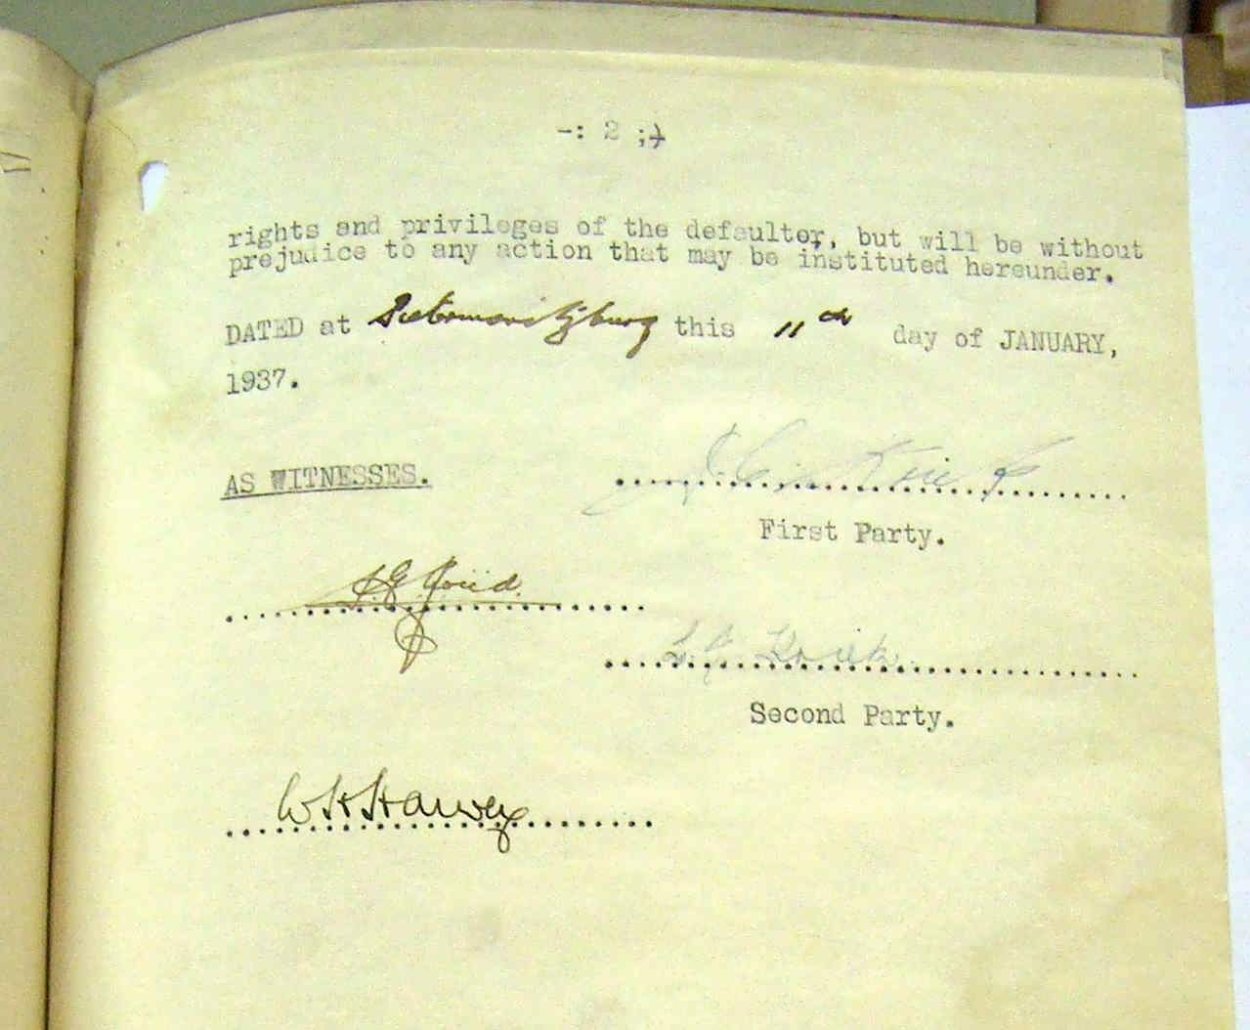 -: 2 ;-
rights and privileges of the defaulter, but will be without
prejudice to any action that may be instituted hereunder.
DATED at Pietermaritzburg this 11th day of JANUARY,
1937.
AS WITNESSES.
First Party.
L. J. Kriek
Second Party.
W H Harvey